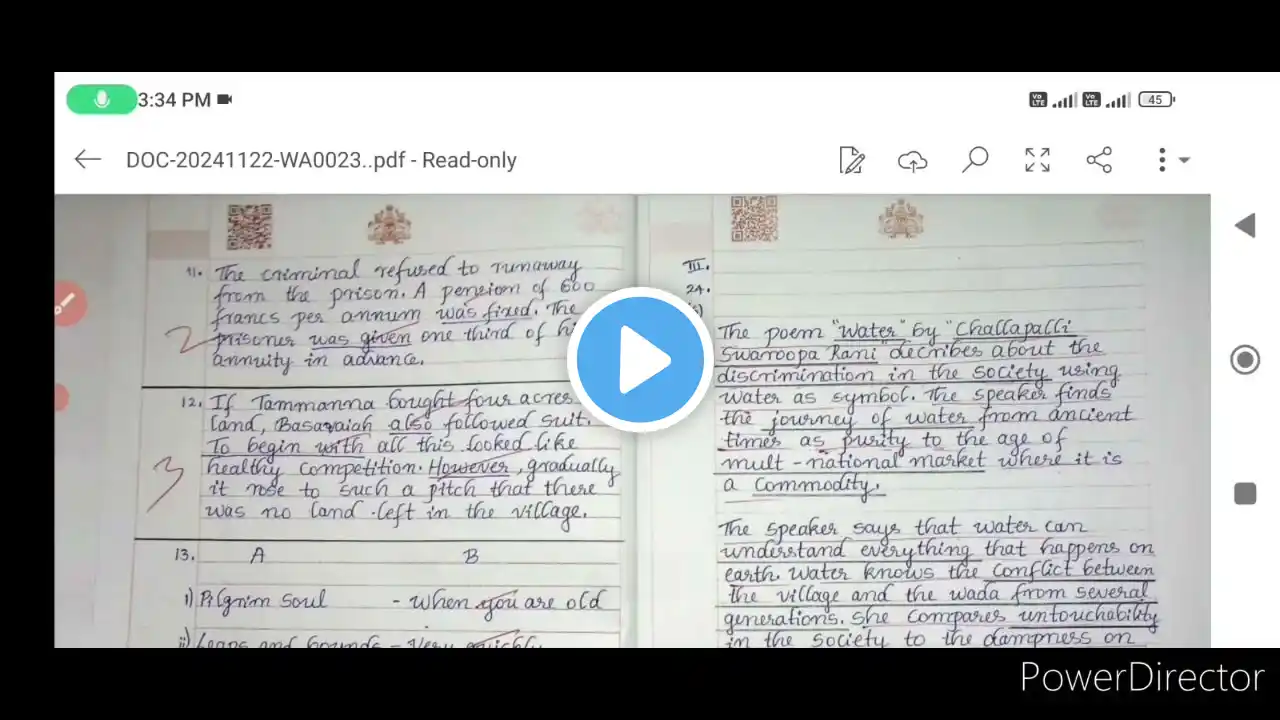 3:34 PM
Vo LTE
Vo LTE
45
DOC-20241122-WA0023..pdf - Read-only
11. The criminal refused to runaway
from the prison. A pension of 600
francs per annum was fixed. The
prisoner was given one third of
annuity in advance.
2
12. If Tammanna bought four acres
land, Basavaiah also followed suit.
To begin with all this looked like
healthy competition. However, gradually
it rose to such a pitch that there
was no land left in the village.
3
13. A B
i) Pilgrim soul - When you are old
ii) Leaps and bounds - Very quickly
III.
24.
The poem "Water" by "Challapalli
Swaroopa Rani" decribes about the
discrimination in the society using
water as symbol. The speaker finds
the journey of water from ancient
times as purity to the age of
mult-national market where it is
a commodity.
The speaker says that water can
understand everything that happens on
earth. Water knows the conflict between
the village and the wada from several
generations. She compares untouchability
in the society to the dampness on
PowerDirector